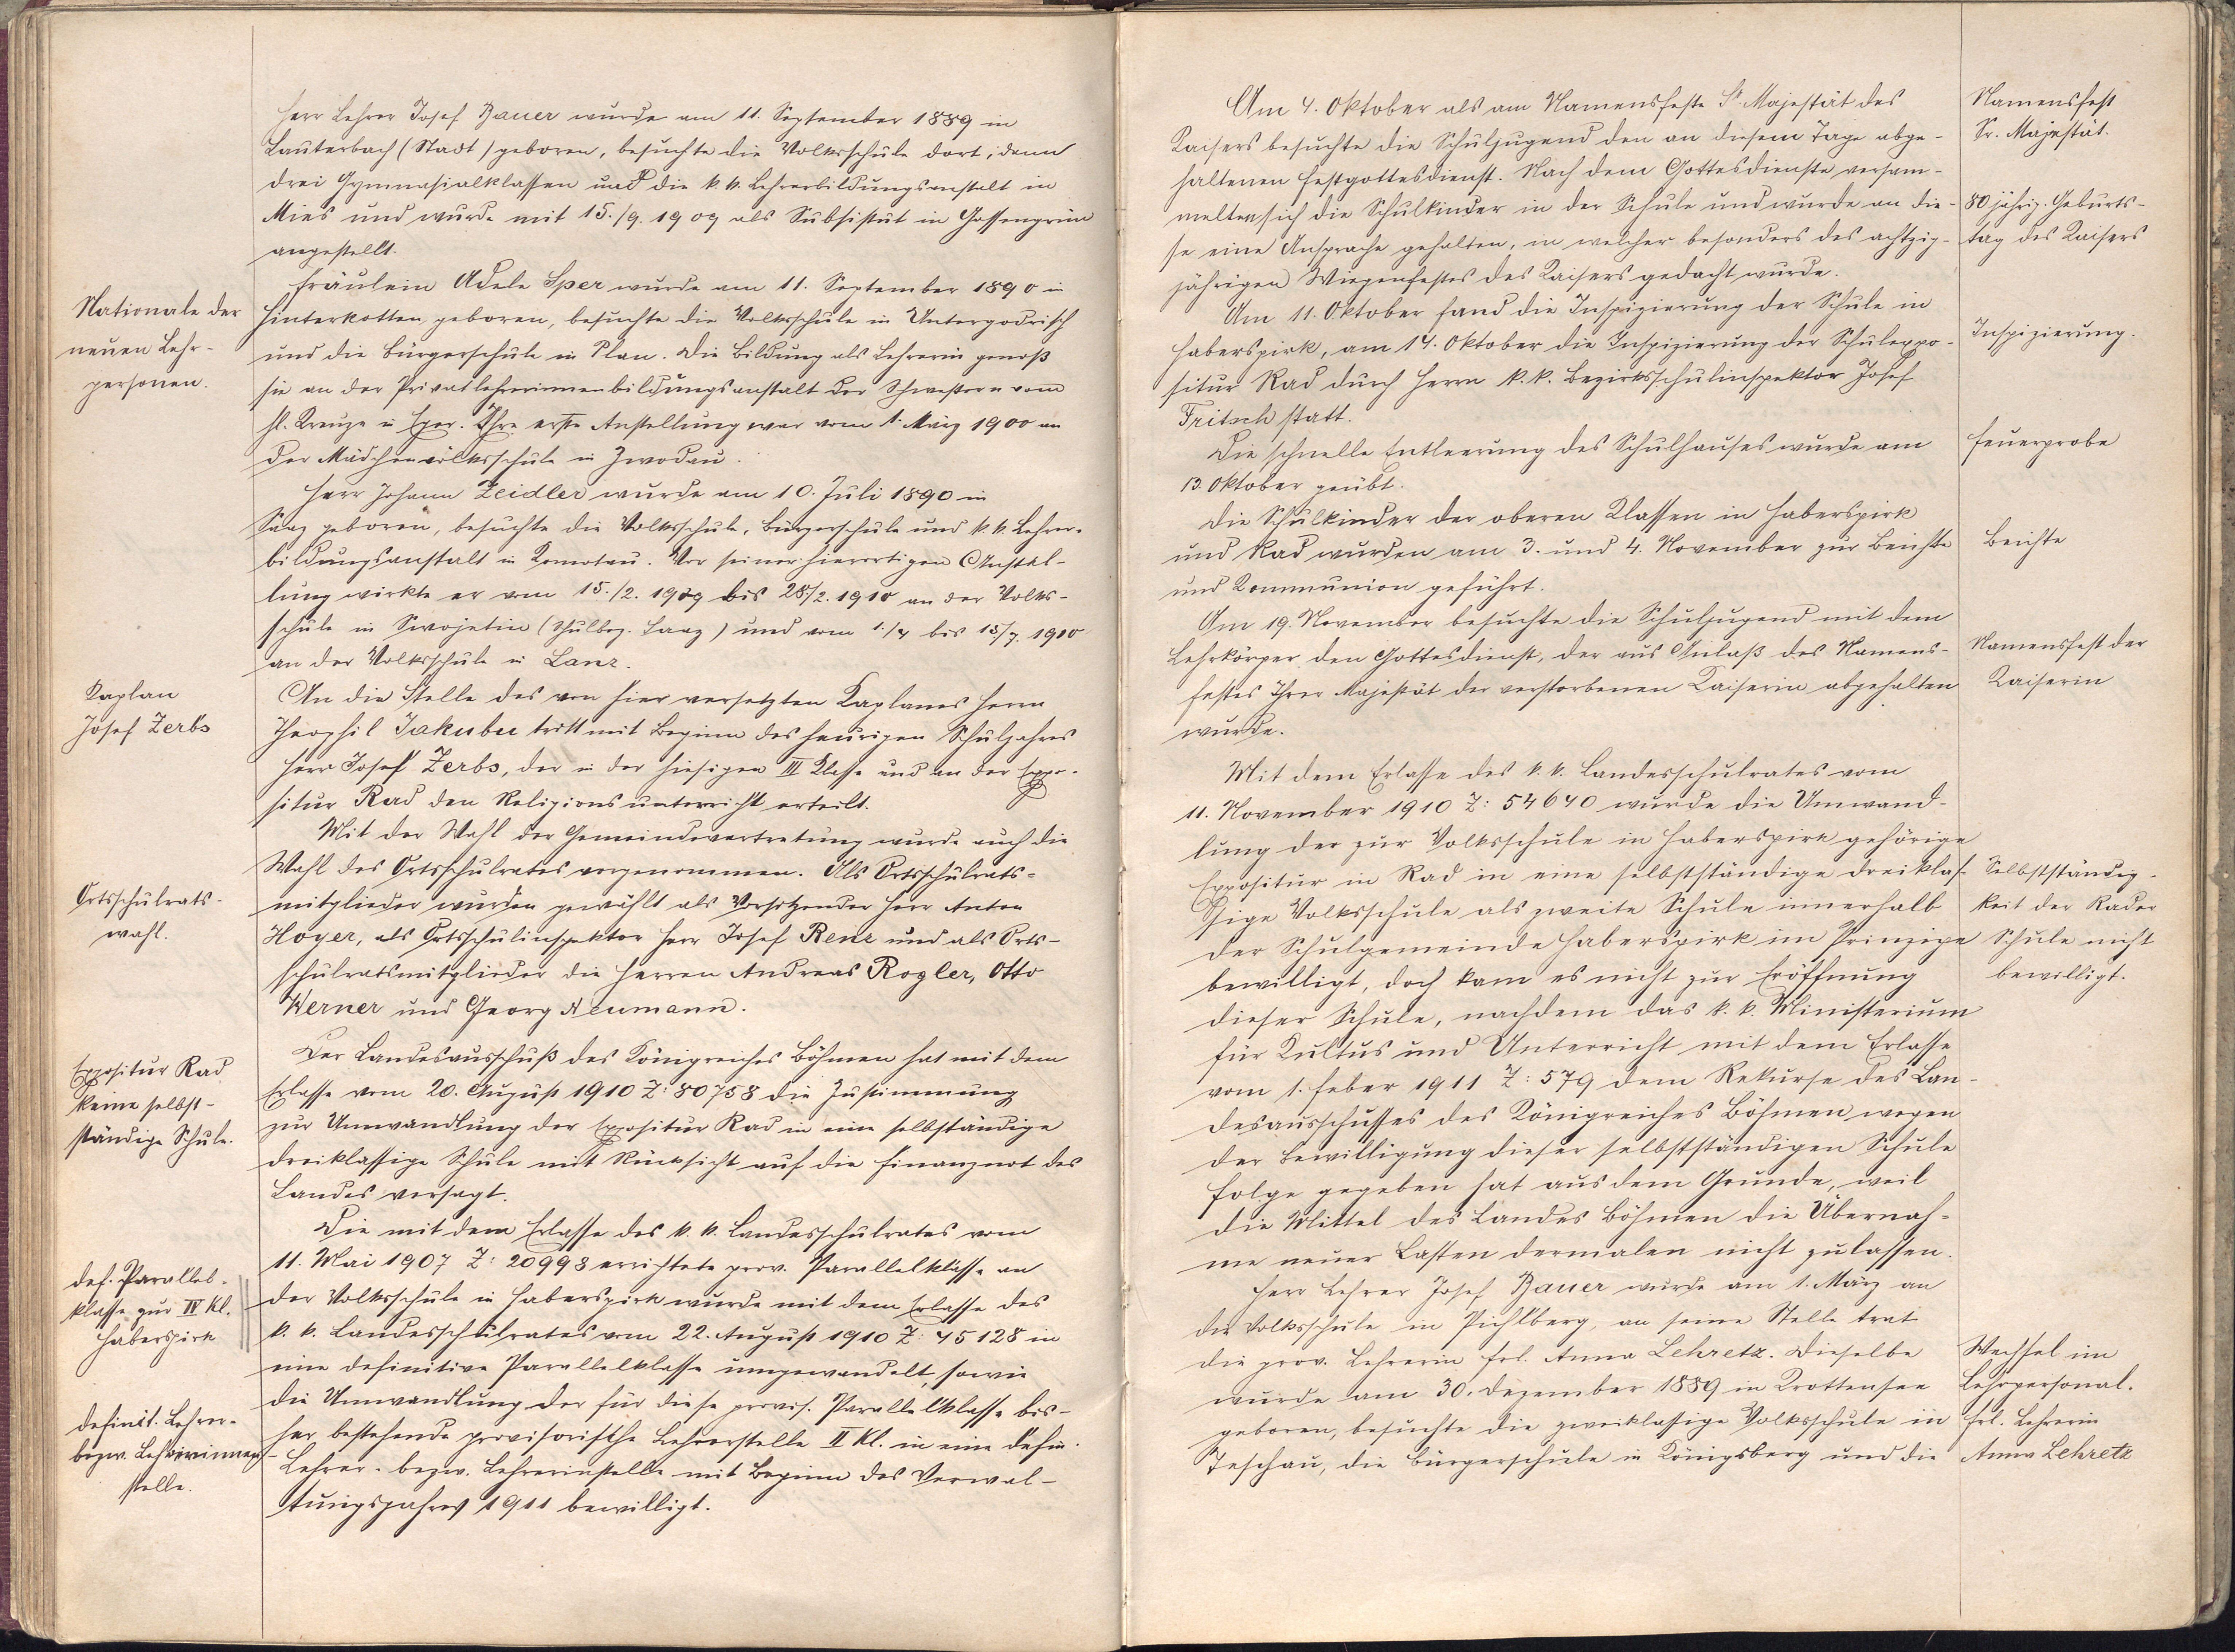 Herr Lehrer Josef Bauer wurde am 11. September 1889 in
Lauterbach (Stadt) geboren, besuchte die Volksschule dort, dann
drei Gymnasialklassen und die k. k. Lehrerbildungsanstalt in
Mies und wurde mit 15./9. 1909 als Subsistut in Gossengrün
angestellt.
Fräulein Adele Sper wurde am 11. September 1890 in
Hinterkotten geboren, besuchte die Volksschule in Untergodrisch
und die Bürgerschule in Plan. Die Bildung als Lehrerin genoß
sie an der Privatlehrerinnenbildungsanstalt der Schwestern vom
hl. Kreuze in Eger. Ihre erste Anstellung war vom 1. März 1900 an
der Mädchenvolksschule in Zwodau.
Nationale der
neuen Lehr-
personen.
Herr Johann Zeidler wurde am 10. Juli 1890 in
Saaz geboren, besuchte die Volksschule, Bürgerschule und k. k. Lehrer-
bildungsanstalt in Komotau. Vor seiner hierortigen Anstel-
lung wirkte er vom 15./2. 1909 bis 28./2. 1910 an der Volks-
schule in Swojetin (Schulbez. Saaz) und vom 1./4 bis 15/7. 1910
an der Volksschule in Lanz.
Kaplan
Josef Zerbs
An die Stelle des von hier versetzten Kaplanes Herrn
Theophil Jakubec tritt mit Beginn des heurigen Schuljahres
Herr Josef Zerbs, der in der hiesigen III Klasse und an der Expo-
situr Rad den Religionsunterricht erteilt.
Mit der Wahl der Gemeindevertretung wurde auch die
Wahl des Ortsschulrates vorgenommen. Als Ortsschulrats-
mitglieder wurden gewählt als Vorsitzender Herr Anton
Hoyer, als Ortsschulinspektor Herr Josef Renz und als Orts-
schulratsmitglieder die Herren Andreas Rogler, Otto
Werner und Georg Neumann.
Ortsschulrats-
wahl.
Der Landesausschuß des Königreiches Böhmen hat mit dem
Erlasse vom 20. August 1910 Z: 80758 die Zustimmung
zur Umwandlung der Expositur Rad in eine selbständige
dreiklassige Schule mit Rücksicht auf die Finanznot des
Landes versagt.
Expositur Rad
keine selbst-
ständige Schule.
Die mit dem Erlasse des k. k. Landesschulrates vom
11. Mai 1907 Z: 20998 errichtete prov. Parallelklasse an
der Volksschule in Haberspirk wurde mit dem Erlasse des
k. k. Landesschulrates vom 22. August 1910 Z: 45128 in
eine definitive Parallelklasse umgewandelt, sowie
die Umwandlung der für diese provis. Parallelklasse bis-
her bestehende provisorische Lehrerstelle II Kl. in eine defin.
Lehrer- bezw. Lehrerinstelle mit Beginn des Verwal-
tungsjahres 1911 bewilligt.
def. Parallel-
klasse zur IV Kl.
Haberspirk
definit. Lehrer-
bezw. Lehrerinnen-
stelle.
Am 4. Oktober als am Namensfeste Sr. Majestät des
Kaisers besuchte die Schuljugend den an diesem Tage abge-
haltenen Festgottesdienst. Nach dem Gottesdienste versam-
melten sich die Schulkinder in der Schule und wurde an die-
se eine Ansprache gehalten, in welcher besonders des achtzig-
jährigen Wiegenfestes des Kaisers gedacht wurde.
Namensfest
Sr. Majestät.
80 jährig. Geburts-
tag des Kaisers
Am 11. Oktober fand die Inspizierung der Schule in
Haberspirk, am 14. Oktober die Inspizierung der Schulexpo-
situr Rad durch Herrn k. k. Bezirksschulinspektor Josef
Fritsch statt.
Inspizierung.
Die schnelle Entleerung des Schulhauses wurde am
13. Oktober geübt.
Feuerprobe
Die Schulkinder der oberen Klassen in Haberspirk
und Rad wurden am 3. und 4. November zur Beichte
und Kommunion geführt.
Beichte
Am 19. November besuchte die Schuljugend mit dem
Lehrkörper den Gottesdienst, der aus Anlaß des Namens-
festes Ihrer Majestät der verstorbenen Kaiserin abgehalten
wurde.
Namensfest der
Kaiserin
Mit dem Erlasse des k. k. Landesschulrates vom
11. November 1910 Z: 54640 wurde die Umwand-
lung der zur Volksschule in Haberspirk gehörige
Expositur in Rad in eine selbstständige dreiklas-
sige Volksschule als zweite Schule innerhalb
der Schulgemeinde Haberspirk im Prinzipe
bewilligt, doch kam es nicht zur Eröffnung
dieser Schule, nachdem das k. k. Ministerium
für Kultus und Unterricht mit dem Erlasse
vom 1. Feber 1911 Z: 579 dem Rekurse des Lan-
desausschusses des Königreiches Böhmen wegen
der Bewilligung dieser selbstständigen Schule
Folge gegeben hat aus dem Grunde, weil
die Mittel des Landes Böhmen die Übernah-
me neuer Lasten dermalen nicht zulassen.
Selbstständig-
keit der Rader
Schule nicht
bewilligt.
Herr Lehrer Josef Bauer wurde am 1. März an
die Volksschule in Pichlberg, an seine Stelle trat
die prov. Lehrerin Frl. Anna Lehretz. Dieselbe
wurde am 30. Dezember 1889 in Krottensee
geboren, besuchte die zweiklassige Volksschule in
Teschau, die Bürgerschule in Königsberg und die
Wechsel im
Lehrpersonal.
Frl. Lehrerin
Anna Lehretz